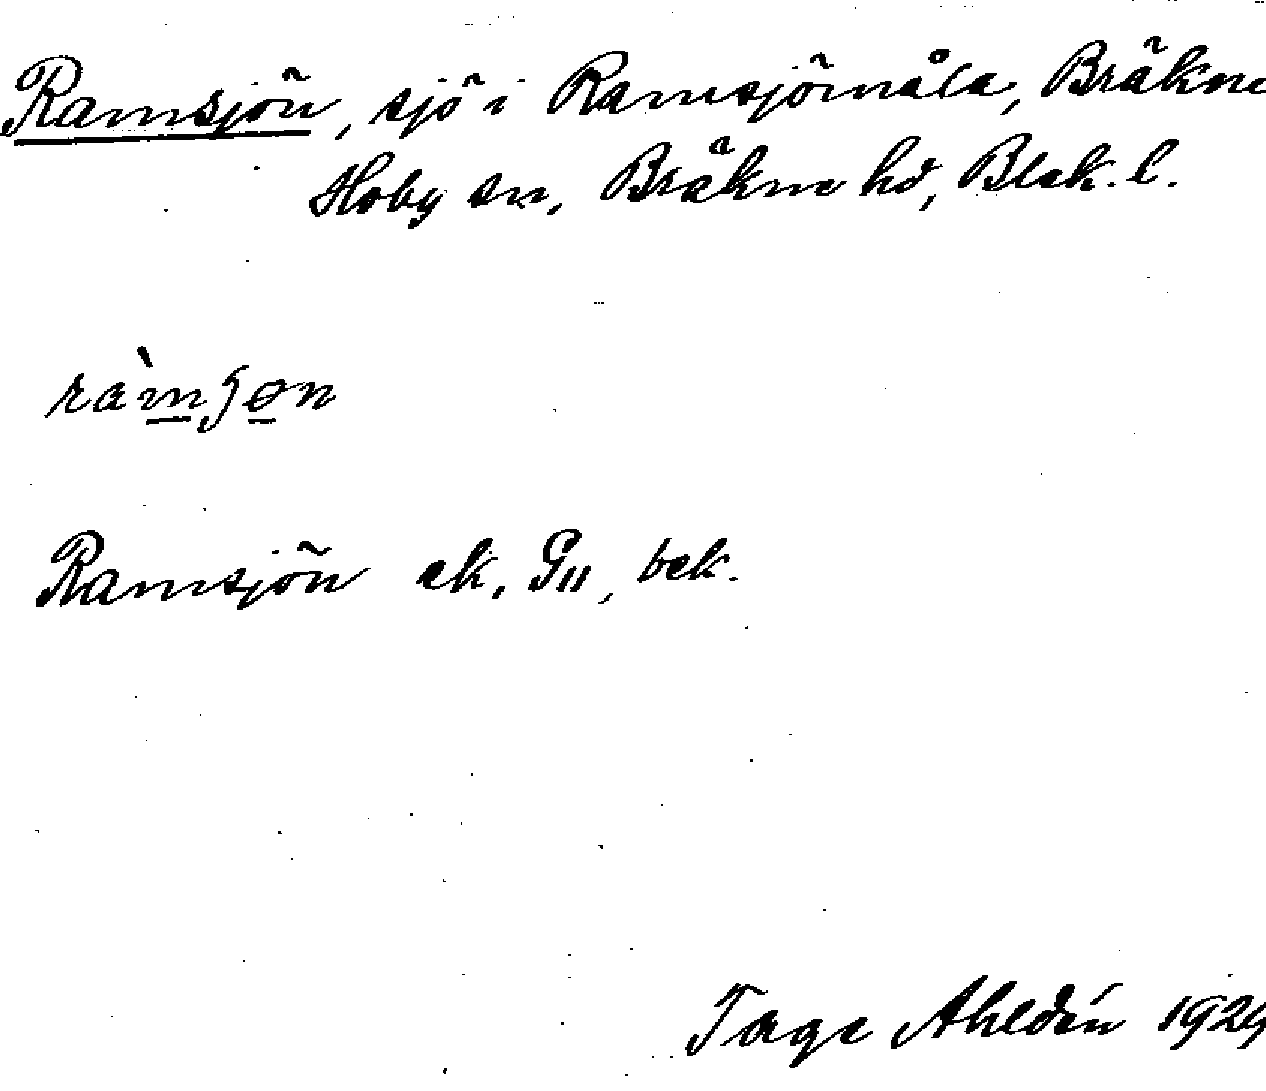 Ramsjön, sjö i Ramsjömåla, Bräkne
Hoby sn, Bräkne hd, Blek. l.
ràmʃøn
Ramsjön ek. G11, bek.
Tage Ahldén 1929